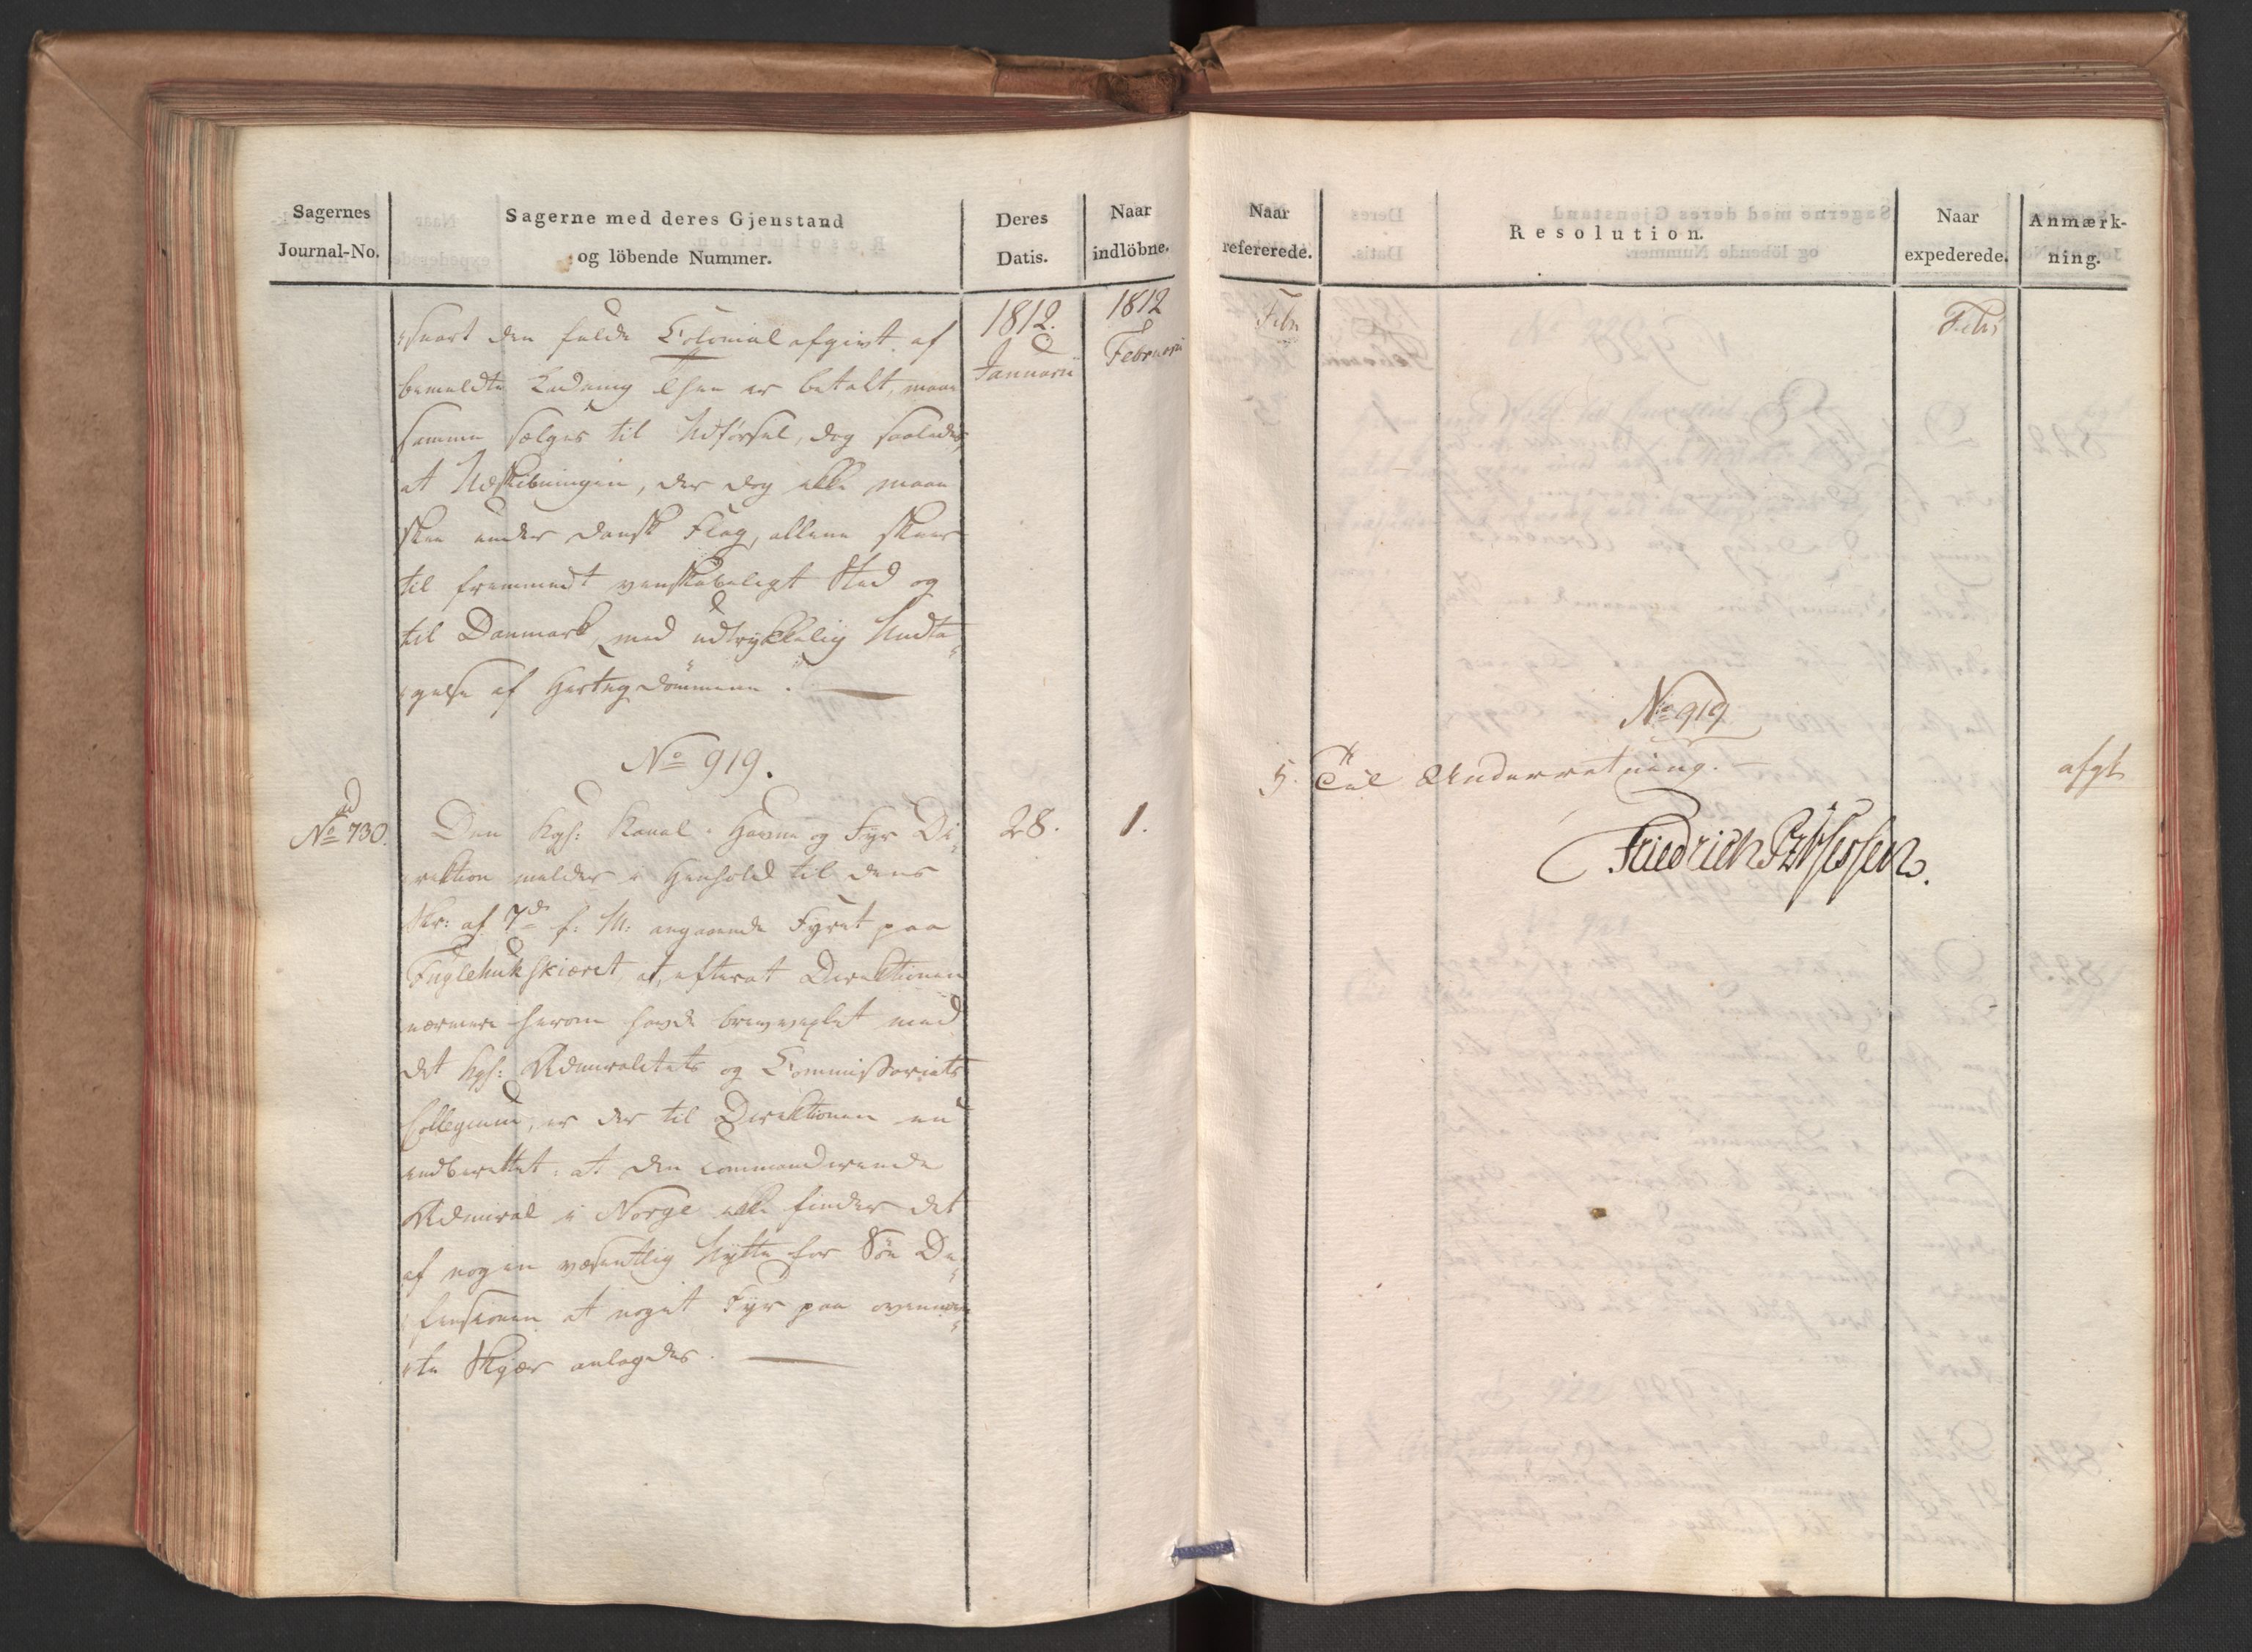 Sagernes
Journal-No.
Sagerne med deres Gjenstand
og löbende Nummer.
Deres
Datis.
Naar
indlöbne.
1812.
Januarii
1812
Februarii
snart den fulde Colonial afgivt af
bemeldte Ladning er betalt, maae
samme sælges til Udförsel, dog saaledes,
at Udskibningen, der dog ikke maae
skee under Dansk Flag, allene skeer
til fremmedt venskabeligt Sted og
til Danmark, med udtrykkelig Undta-
gelse af Hertugdömmene.
No 919.
ad
No 730.
Den Kgl: Kanal- Havne og Fyr Di-
28.
1.
rektion melder i Henhold til dens
Skr: af 7de f: M: angaaende Fyret paa
Fuglehukskiæret, at, efterat Direktionen
nærmere herom havde brevvexlet med
det Kgl: Admiralitets og Commissariats
Collegium, er der til Direktionen nu
indberettet: at den commanderende
Admiral i Norge ikke finder det
af nogen væsentlig Nytte for Söe De-
fensionen at noget Fyr paa ovenmeld-
te Skjær anlagdes.
Naar
refererede.
Resolution.
Naar
expederede.
Anmærk-
ning.
Febr
Febr
No 919
5.
Til Underretning.
afgt
Friedrich Pz v Hessen.